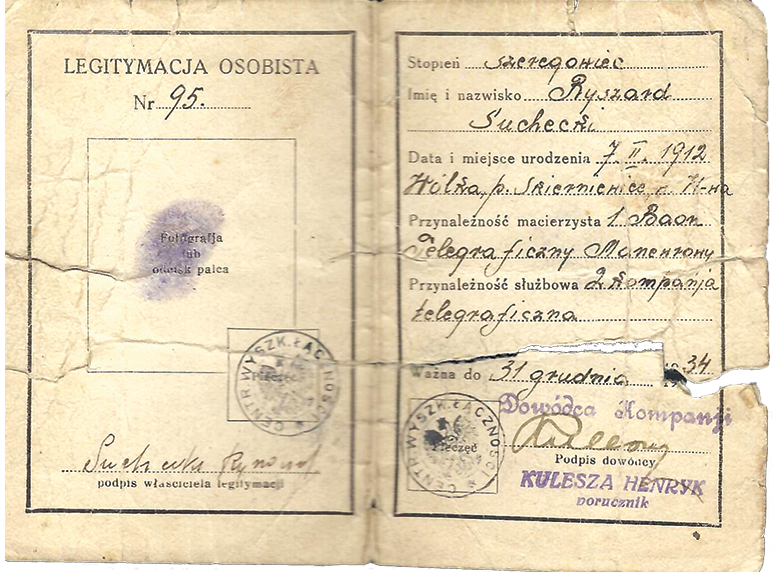 LEGITYMACJA OSOBISTA
Nr 95.
Fotografja
lub
odcisk palca
Pieczęć
CENTR WYSZK. ŁĄCZNOŚCI
Suchecki Ryszard
podpis właściciela legitymacji
Stopień szeregowiec
Imię i nazwisko Ryszard
Suchecki
Data i miejsce urodzenia 7. II. 1912
Wólka, p. Skierniewice,
Przynależność macierzysta 1 Baon
Telegraficzny Manewrowy
Przynależność służbowa 2 kompanja
telegraficzna
Ważna do 31 grudnia 1934
Dowódca Kompanji
Pieczęć
CENTR WYSZK. ŁĄCZNOŚCI
Podpis dowódcy
KULESZA HENRYK
porucznik